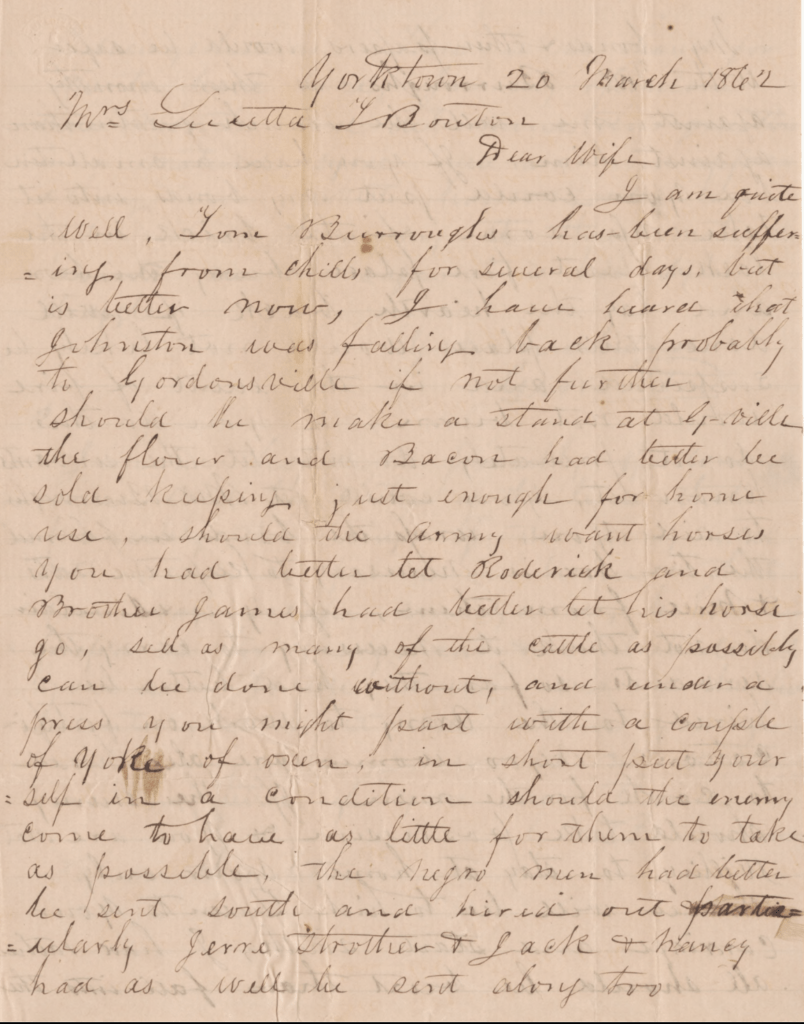 Yorktown 20 March 1862
Mrs Lucetta T Bouton
Dear Wife
I am quite
well, Tom Burroughs has been suffer=
=ing from chills for several days, but
is better now, I have heard that
Johnston was falling back probably
to Gordonsville if not further
should he make a stand at G-ville
the flour and Bacon had better be
sold keeping just enough for home
use, should the army want horses
you had better let Roderick and
Brother James had better let his horse
go, sell as many of the cattle as possibly
can be done without, and under a
press you might part with a couple
of Yoke of oxen, in short put your
=self in a condition should the enemy
come to have as little for them to take
as possible, the negro men had better
be sent south and hired out partic=
=ularly Jerre Strother & Jack & Nancy
had as well be sent along too